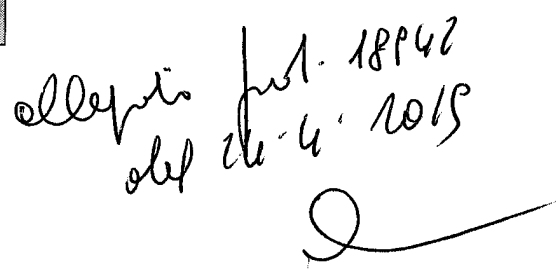 allegato prot. 18942
del 24.4.2019